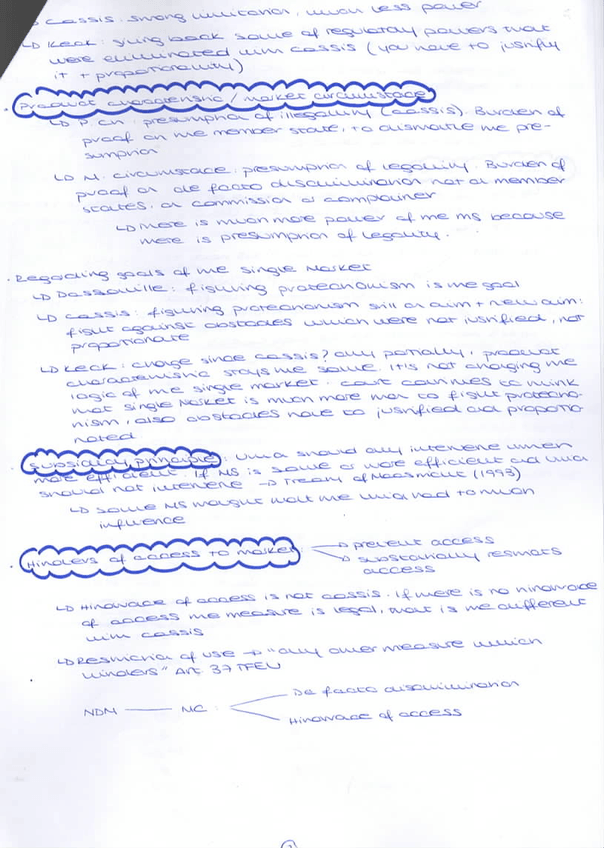 ↳ Cassis: strong limitation, much less power
↳ Keck: giving back some of regulatory powers that
were eliminated with cassis (you have to justify
it + proportionality)
· Product characteristic / market circumstace
↳ P. ch.: presumption of illegality (cassis). Burden of
proof on the member state, to dismatle the pre-
sumption
↳ M. circumstace: presumption of legality. Burden of
proof on de facto discrimination not on member
states, on commission or complainer
↳ There is much more power of the ms because
there is presumption of legality.
· Regarding goals of the single market
↳ Dassonville: figuring protectionism is the goal
↳ Cassis: figuring protectionism still an aim + new aim:
fight against obstacles which were not justified, not
proportionate
↳ Keck: change since cassis? only partially, product
characteristic stays the same. It is not changing the
logic of the single market. Court continues to think
that single market is much more than to fight protectio-
nism, also obstacles have to justified and proportio-
nated.
· Subsidiary principle: Union should only intervene when
more efficient. If MS is same or more efficient and union
should not intervene → Treaty of Maastricht (1993)
↳ Some MS thought that the union had to much
influence
· Hinders of access to market → prevent access
→ substantially restricts
access
↳ Hindrance of access is not cassis. If there is no hindrance
of access the measure is legal, that is the different
with cassis
↳ Restriction of use → "any other measure which
hinders" Art. 37 TFEU
NDM — MC: De facto discrimination
Hindrance of access